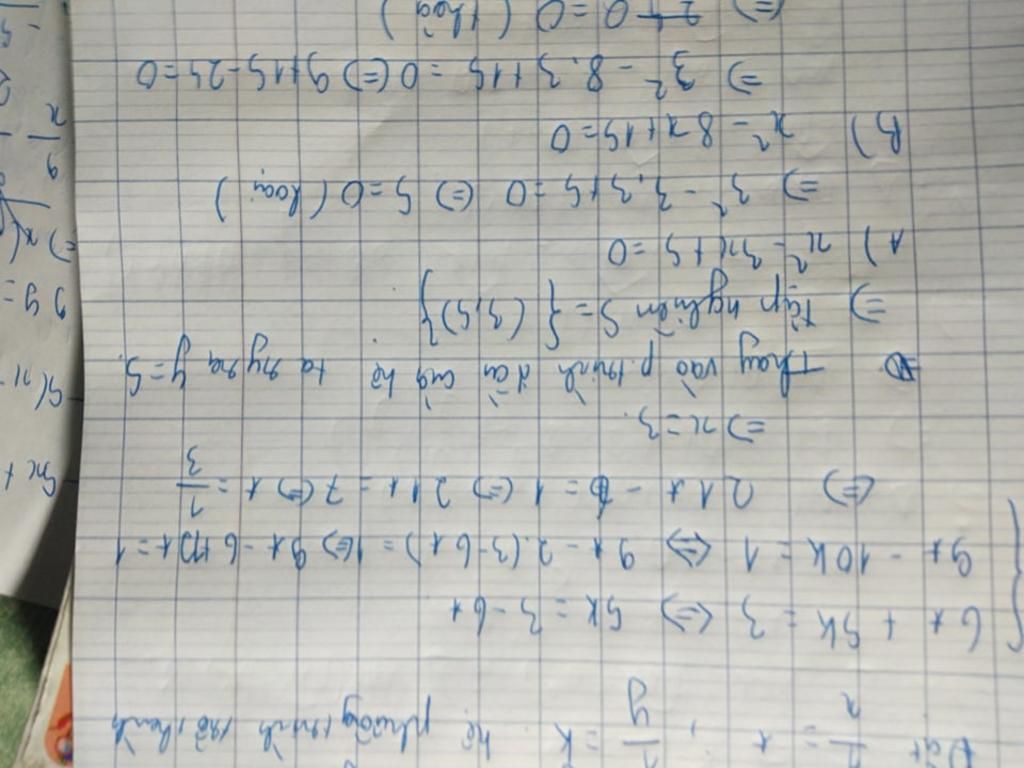 Đặt 1/x = t, 1/y = k hệ phương trình trở thành
6t + 5k = 3 <=> 5k = 3 - 6t
9t - 10k = 1 <=> 9t - 2.(3-6t) = 1 <=> 9t - 6 + 12t = 1
<=> 21t - 6 = 1 <=> 21t = 7 <=> t = 1/3
=> x = 3.
Thay vào p.trình đầu của hệ ta suy ra y = 5.
=> tập nghiệm S = { (3,5) }
A) x² - 3x + 5 = 0
=> 3² - 3.3 + 5 = 0 <=> 5 = 0 (loại)
B) x² - 8x + 15 = 0
=> 3² - 8.3 + 15 = 0 <=> 9 + 15 - 24 = 0
<=> 0 = 0 (thoả)
5x +
5(x -
9y =
=> x(
9
x